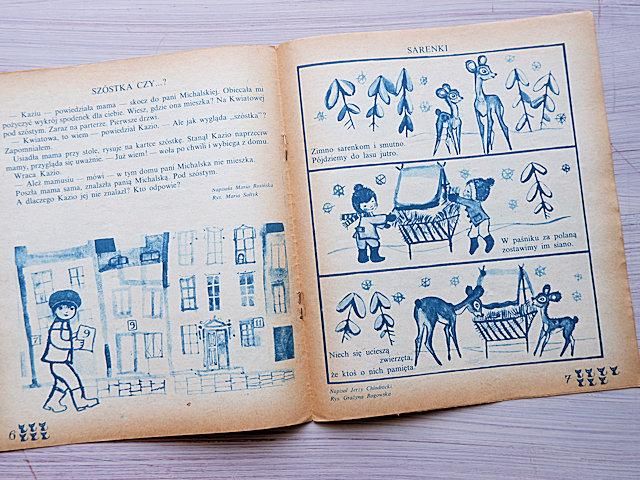 SZÓSTKA CZY...?
— Kaziu — powiedziała mama — skocz do pani Michalskiej. Obiecała mi
pożyczyć wykrój spodenek dla ciebie. Wiesz, gdzie ona mieszka? Na Kwiatowej
pod szóstym. Zaraz na parterze. Pierwsze drzwi.
— Kwiatowa, to wiem — powiedział Kazio. — Ale jak wygląda „szóstka"?
Zapomniałem.
Usiadła mama przy stole, rysuje na kartce szóstkę. Stanął Kazio naprzeciw
mamy, przygląda się uważnie. — Już wiem! — woła po chwili i wybiega z domu.
Wraca Kazio.
— Ależ mamusiu — mówi — w tym domu pani Michalska nie mieszka.
Poszła mama sama, znalazła panią Michalską. Pod szóstym.
A dlaczego Kazio jej nie znalazł? Kto odpowie?
Napisała Maria Rosińska
Rys. Maria Sołtyk
7
9
11
9
6
SARENKI
Zimno sarenkom i smutno.
Pójdziemy do lasu jutro.
W paśniku za polaną
zostawimy im siano.
Niech się ucieszą
zwierzęta,
że ktoś o nich pamięta.
Napisał Jerzy Chłodnicki
Rys. Grażyna Rogowska
7